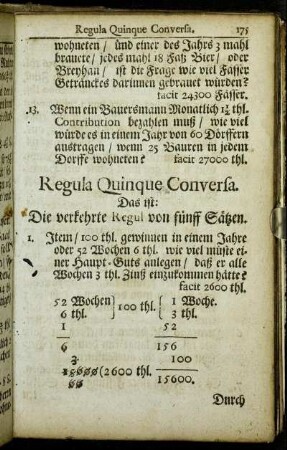 Regula Quinque Conversa. 175
wohneten / und einer des Jahrs 3 mahl
brauete / jedes mahl 18 Faß Bier / oder
Breyhan / ist die Frage wie viel Fässer
Geträncktes darinnen gebrauet würden?
facit 24300 Fässer.
13. Wenn ein Bauersmann Monatlich thl.
Contribution bezahlen muß / wie viel
würde es in einem Jahr von 60 Dörffern
austragen / wenn 25 Bauren in jedem
Dorffe wohneten? facit 27000 thl.
Regula Quinque Conversa.
Das ist:
Die verkehrte Regul von fünff Sätzen.
1. Item / 100 thl. gewinnen in einem Jahre
oder 52 Wochen 6 thl. wie viel müste ei-
ner Haupt-Guts anlegen / daß er alle
Wochen 3 thl. Zinß einzukommen hätte?
facit 2600 thl.
52 Wochen } 100 thl. { 1 Woche.
6 thl. 3 thl.
1 52
6 156
3 100
15600 (2600 thl.
66 15600.
Durch